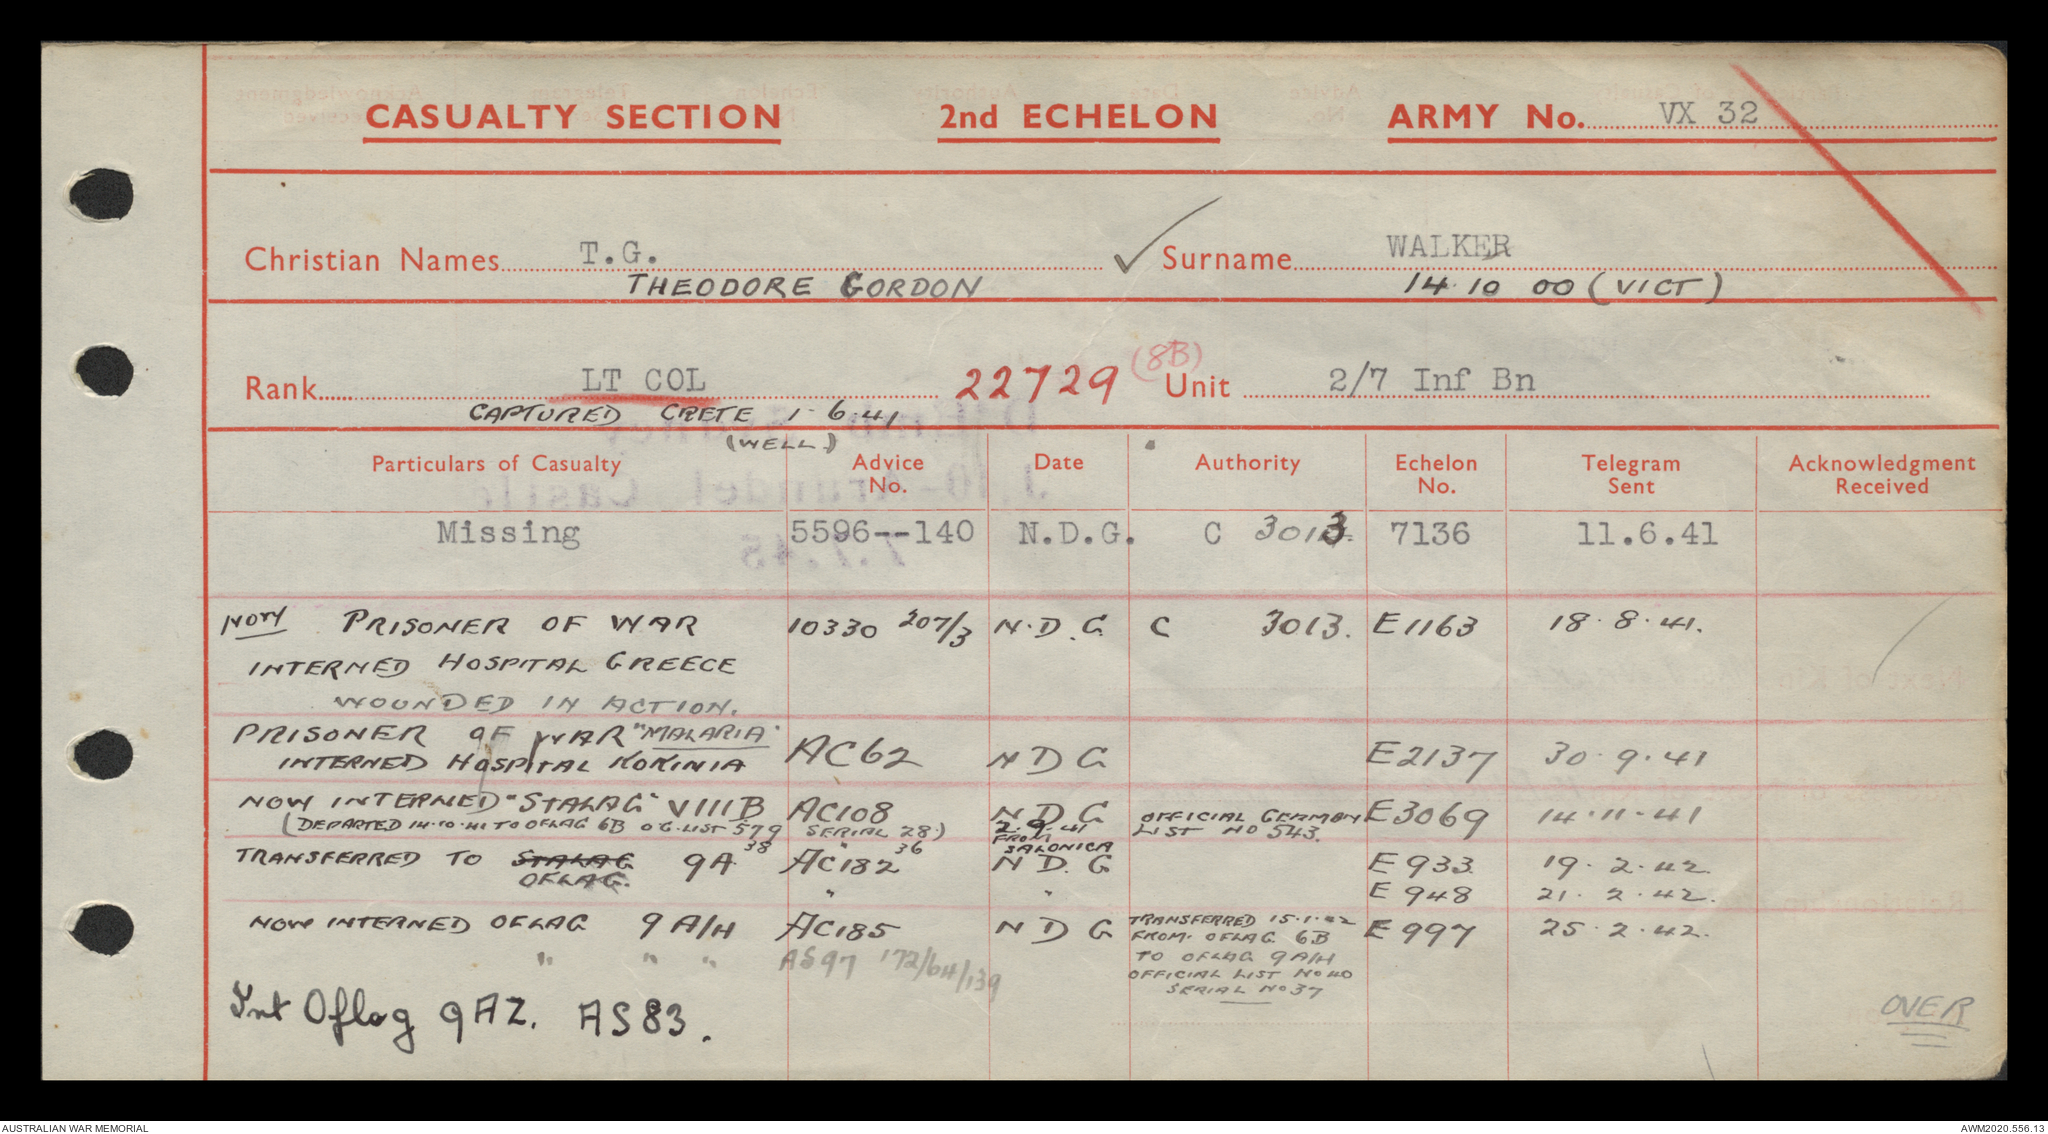 CASUALTY SECTION 2nd ECHELON ARMY No. VX 32
Christian Names T.G. Surname WALKER
THEODORE GORDON 14.10 00 (VICT)
Rank LT COL 22729 (8B) Unit 2/7 Inf Bn
CAPTURED CRETE 1.6.41
(WELL)
Particulars of Casualty Advice No. Date Authority Echelon No. Telegram Sent Acknowledgment Received
Missing 5596--140 N.D.G. C 3013 7136 11.6.41
NOW PRISONER OF WAR 10330 207/3 N.D.G C 3013. E1163 18.8.41.
INTERNED HOSPITAL GREECE
WOUNDED IN ACTION.
PRISONER OF WAR "MALARIA"
INTERNED HOSPITAL KOKINIA AC62 N D G E2137 30.9.41
NOW INTERNED "STALAG" VIIIB AC108 N D G OFFICIAL GERMAN LIST NO 543. E3069 14.11.41
(DEPARTED 14.10.41 TO OFLAG 6B O.G. LIST 579 SERIAL 28.) 2.9.41 FROM SALONICA
TRANSFERRED TO STALAG 9A 38 AC182 36 N D. G E 933 19.2.42.
OFLAG. " " E 948 21.2.42.
NOW INTERNED OFLAG 9 A/H AC185 N D G TRANSFERRED 15.1.42 E 997 25.2.42.
FROM OFLAG 6B
" " " AS97 172/64/139 TO OFLAG 9A/H
OFFICIAL LIST NO 40
SERIAL NO 37
Int Oflag 9AZ. AS83.
OVER
AUSTRALIAN WAR MEMORIAL AWM2020.556.13